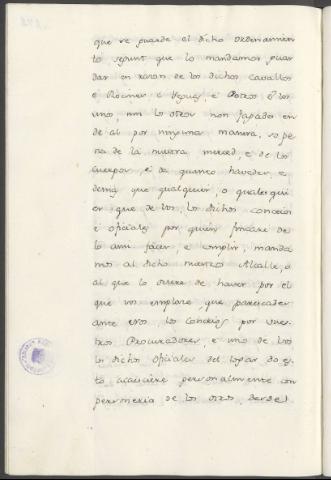 que se guarde el dicho ordenamien
to segunt que lo mandamos guar
dar en razon de los dichos cavallos
e Rocines e Yeguas, e Potros e los
unos, nin los otros non fagades en
de al por ninguna manera, so pe
na de la nuestra merced, e de los
cuerpos, e de quanto havedes, e
demas que qualquier, o quales qui
er que de vos, los dichos concejos
e oficiales por quien fincare de
lo ansi facer, e complir, manda
mos al dicho nuestro Alcalle, o
al que lo oviere de haver por el
que vos emplace, que parescades
ante Nos, los Concejos por vues
tros Procuradores, e uno de los
los dichos oficiales del logar do es
to acaesciere personalmente con
personeria de los otros, desde l